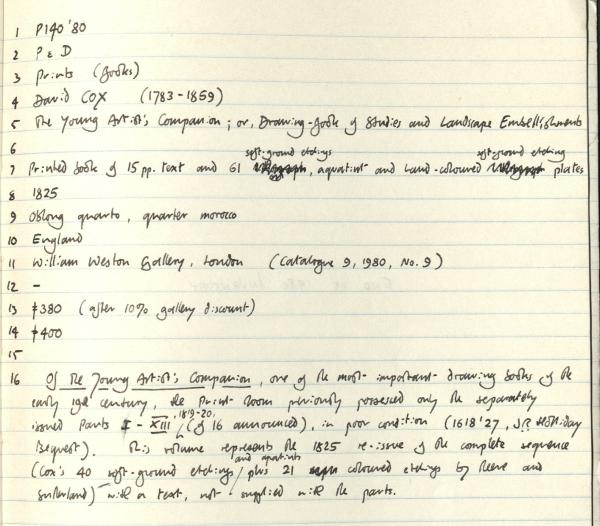 1 P140 '80
2 P & D
3 Prints (books)
4 David COX (1783-1859)
5 The Young Artist's Companion; or, Drawing-book of Studies and Landscape Embellishments
6
soft-ground etchings soft-ground etching
7 Printed book of 15 pp. text and 61 , aquatint and hand-coloured plates
8 1825
9 Oblong quarto, quarter morocco
10 England
11 William Weston Gallery, London (Catalogue 9, 1980, No. 9)
12 -
13 £380 (after 10% gallery discount)
14 £400
15
16 Of The Young Artist's Companion, one of the most important drawing books of the
early 19th century, the Print Room previously possessed only the separately
issued Parts I - XIII, 1819-20, (of 16 announced), in poor condition (1618 '27, J.R. Holliday
Bequest). This volume represents the 1825 re-issue of the complete sequence
(Cox's 40 soft-ground etchings and aquatints plus 21 coloured etchings by Reeve and
Sutherland) with a text, not supplied with the parts.